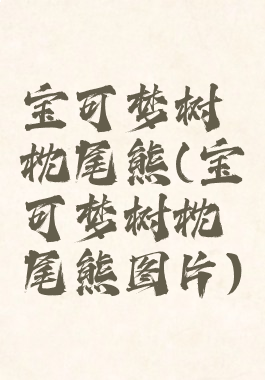 宝可梦树
枕尾熊(宝
可梦树枕
尾熊图片)